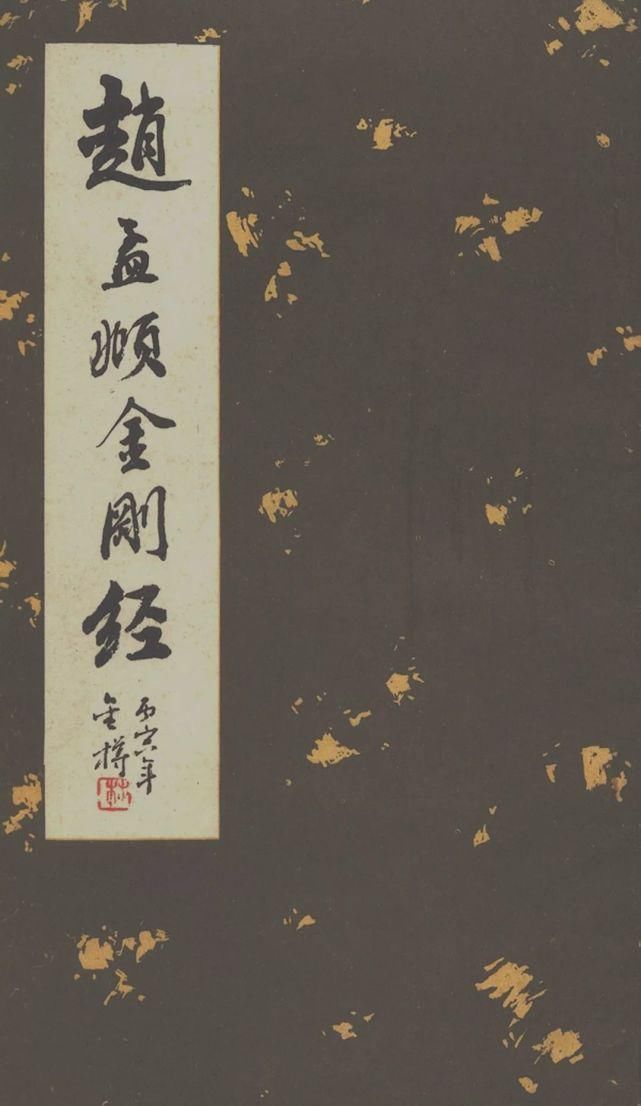 趙孟頫金剛經
丙寅年
金樽